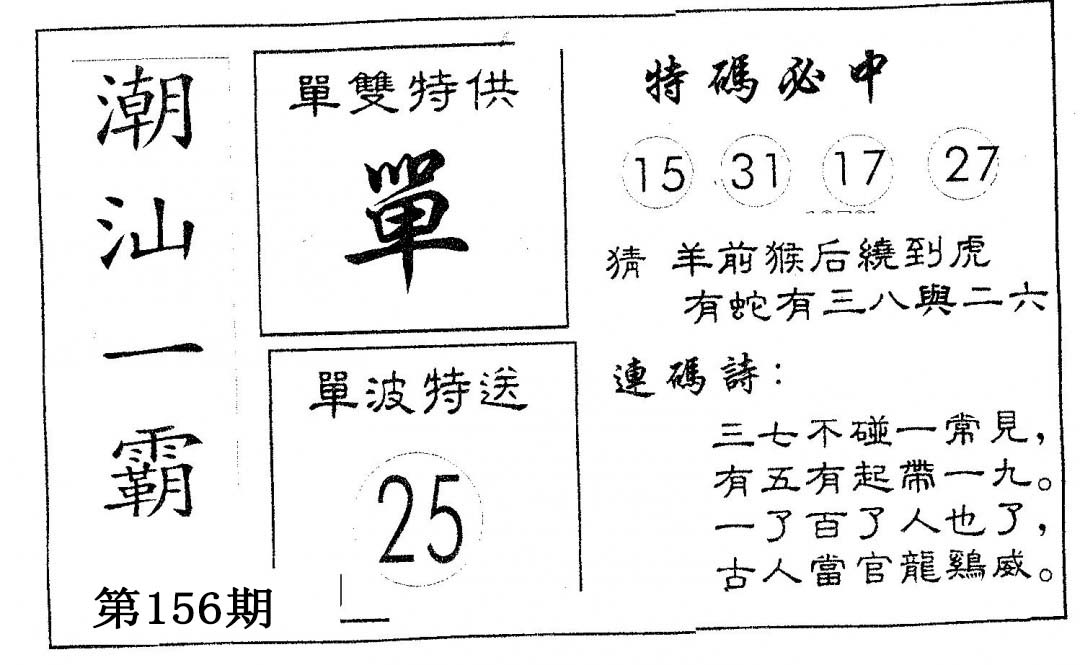 潮汕一霸
第156期
單雙特供
單
單波特送
25
特碼必中
15 31 17 27
猜 羊前猴后繞到虎
有蛇有三八與二六
連碼詩：
三七不碰一常見，
有五有起帶一九。
一了百了人也了，
古人當官龍鷄威。